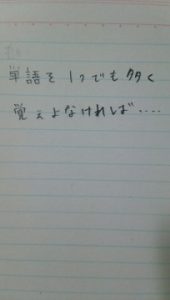 単語を1つでも多く
覚えよなければ....